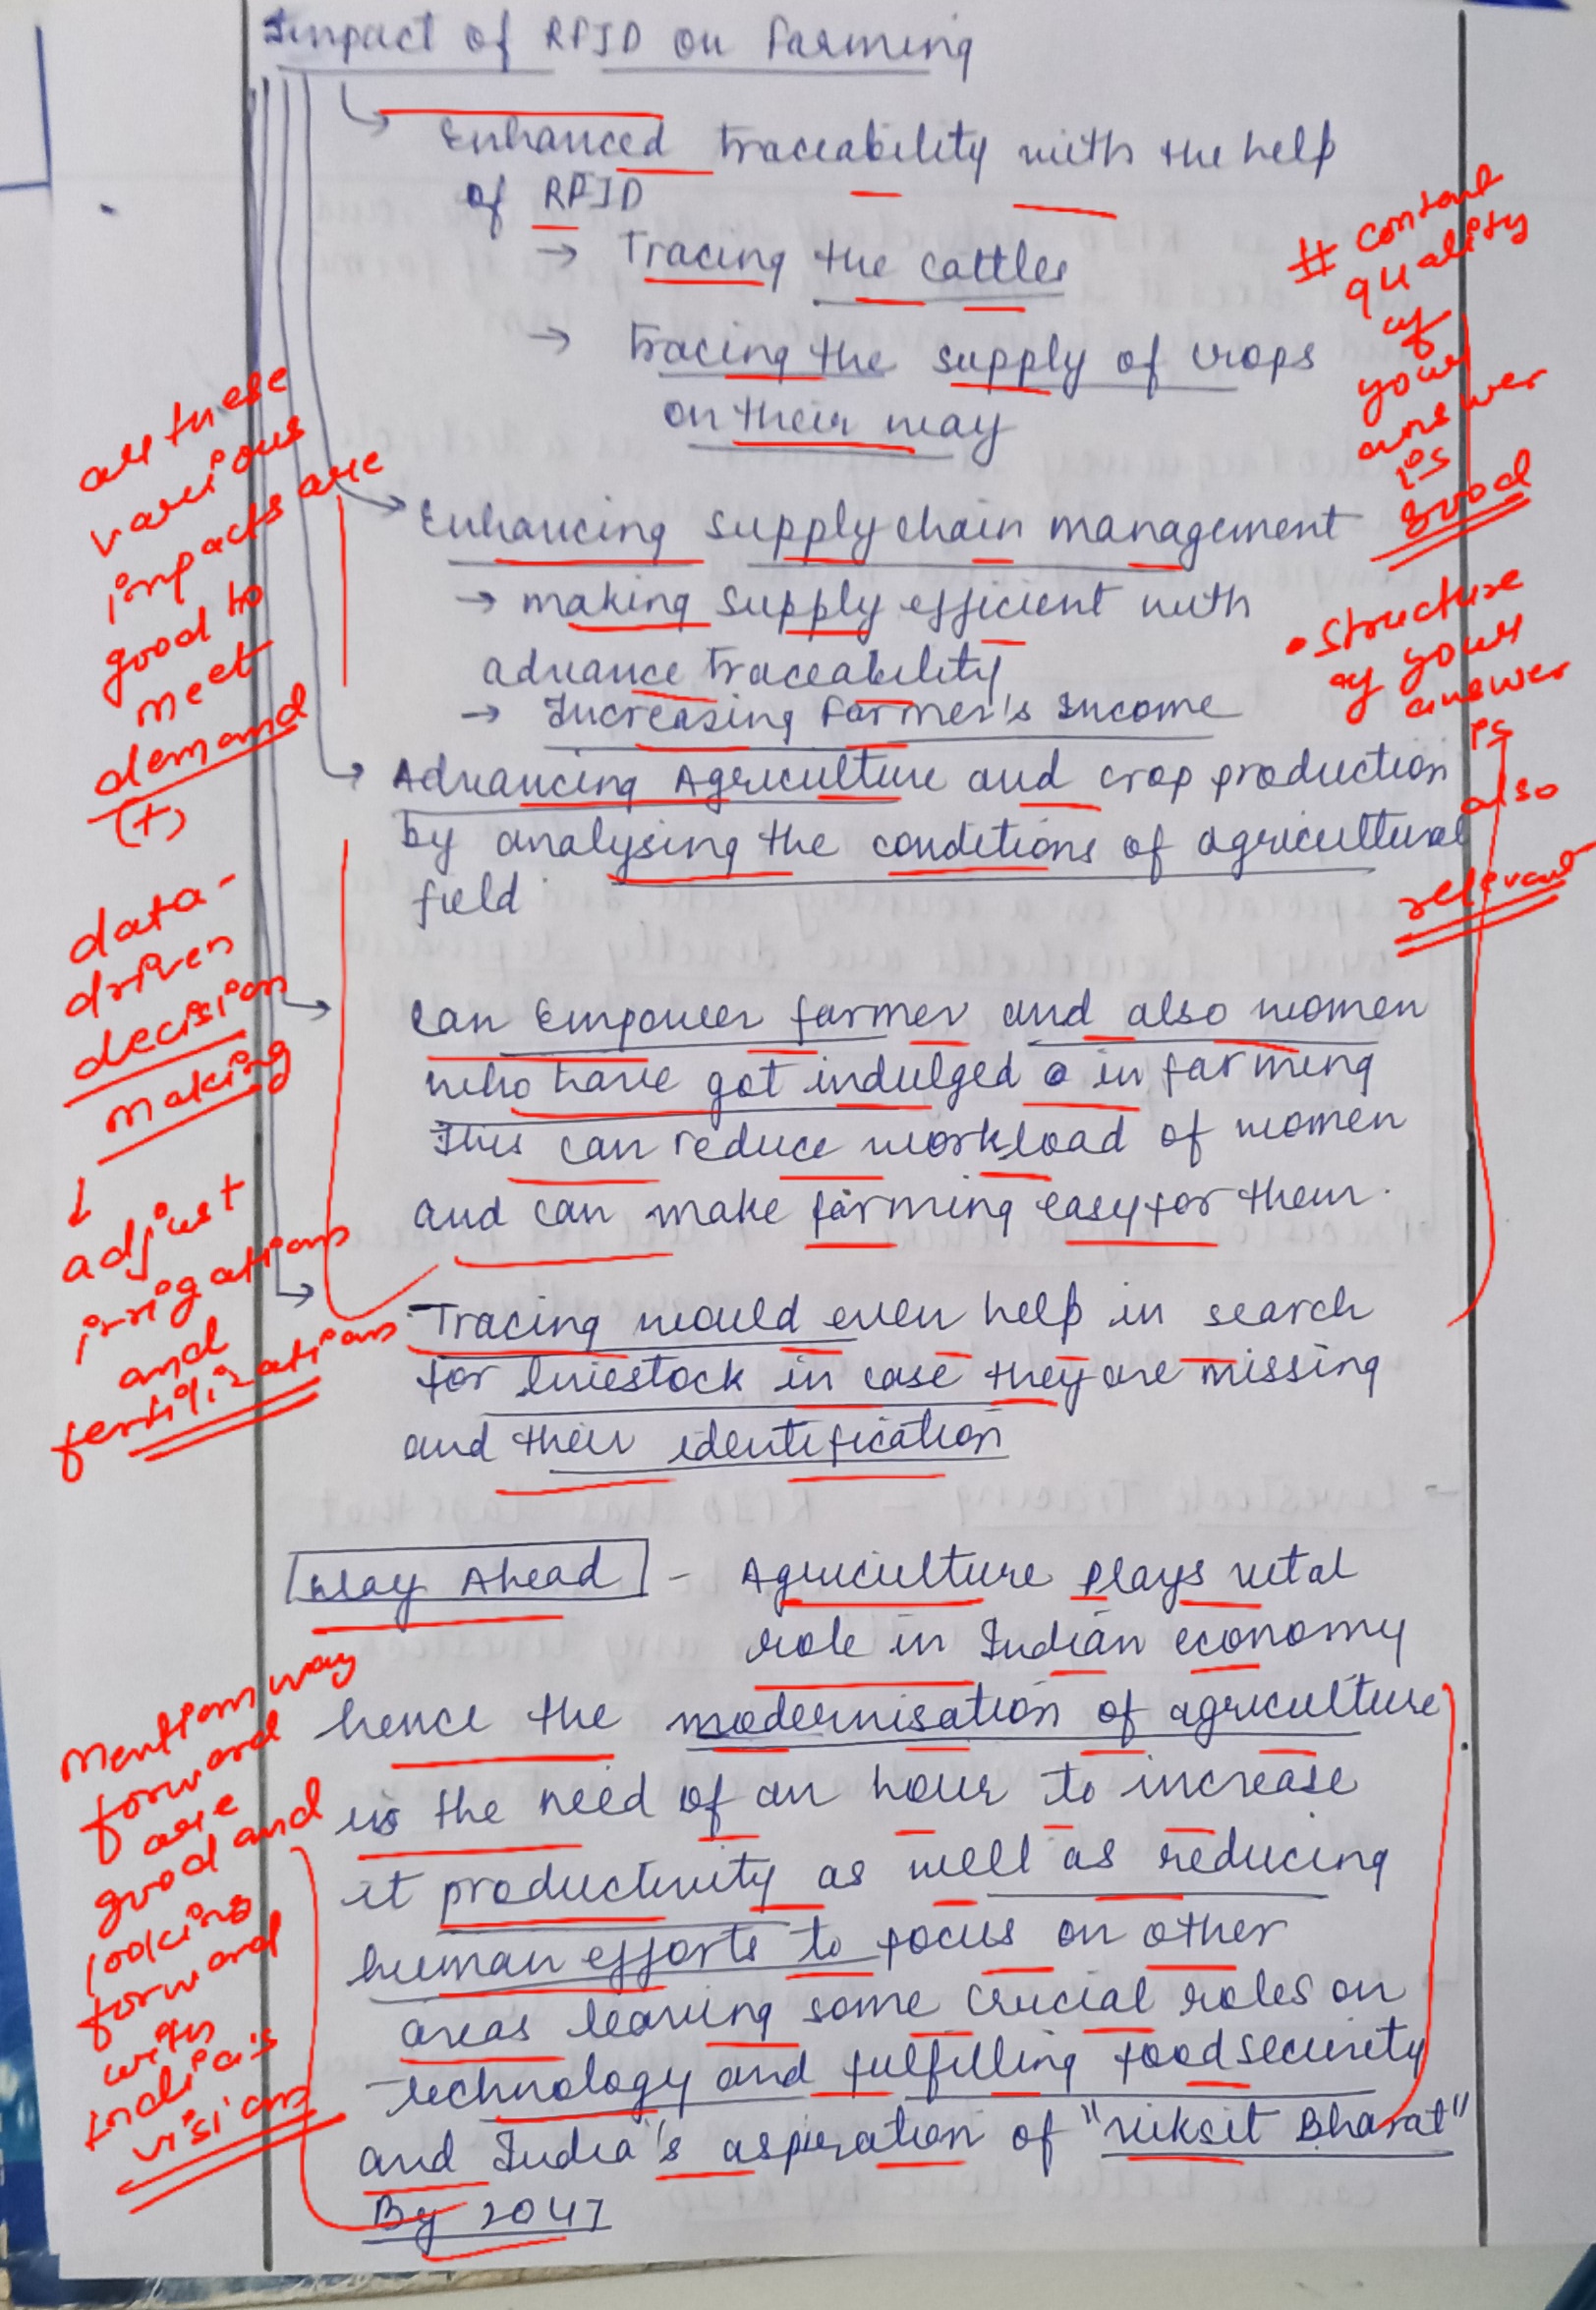 Impact of RFID on Farming
Enhanced traceability with the help
of RFID
→ Tracing the cattles
→ Tracing the supply of crops
on their way
Enhancing supply chain management
→ making supply efficient with
advance traceability
→ Increasing Farmer's Income
Advancing Agriculture and crop production
by analysing the conditions of agricultural
field
Can Empower farmer and also women
who have got indulged in farming
This can reduce workload of women
and can make farming easy for them.
Tracing would even help in search
for livestock in case they are missing
and their identification
Way Ahead - Agriculture plays vital
role in Indian economy
hence the modernisation of agriculture
is the need of an hour to increase
it productivity as well as reducing
human efforts to focus on other
areas leaving some crucial roles on
technology and fulfilling food security
and India's aspiration of "Viksit Bharat"
By 2047
all these
various
impacts are
good to
meet
demand
(+)
data-
driven
decision
making
↓
adjust
irrigations
and
fertilizations
Mention way
forward
are
good and
looking
forward
with
india's
visions
# content
quality
of
your
answer
is
good
• structure
of your
answer
is
also
relevant